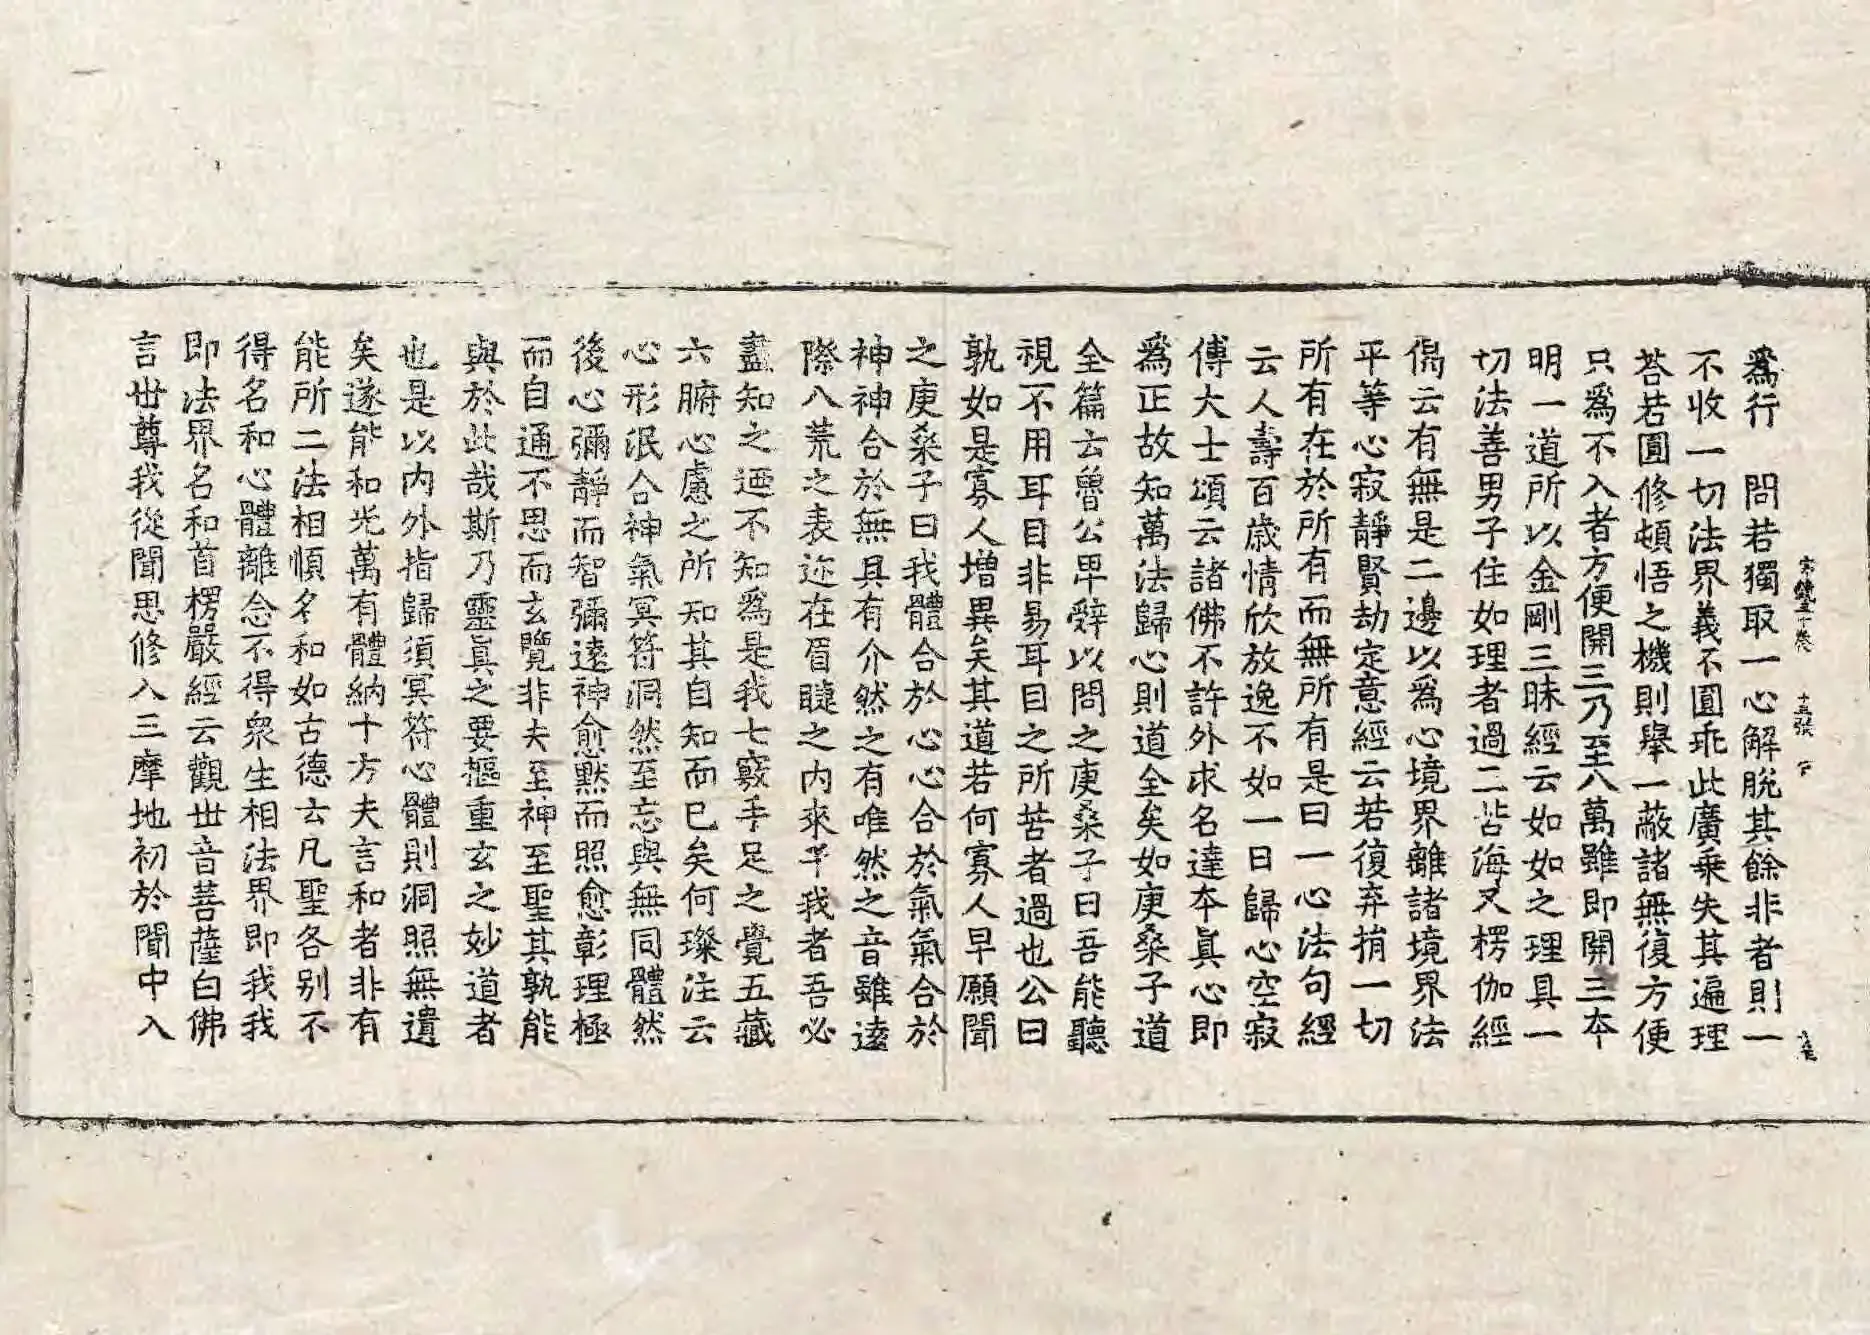 爲行 問若獨取一心解脫其餘非者則一
不收一切法界義不圓乖此廣乗失其遍理
荅若圓修頓悟之機則舉一蔽諸無復方便
只爲不入者方便開三乃至八萬雖即開三本
明一道所以金剛三昧經云如如之理具一
切法善男子住如理者過二苦海又楞伽經
偈云有無是二邊以爲心境界離諸境界法
平等心寂靜賢劫定意經云若復弃捐一切
所有在於所有而無所有是曰一心法句經
云人壽百歲情欣放逸不如一日歸心空寂
傅大士頌云諸佛不許外求名達本眞心即
爲正故知萬法歸心則道全矣如庚桑子道
全篇云魯公卑辭以問之庚桑子曰吾能聽
視不用耳目非易耳目之所苦者過也公曰
孰如是寡人增異矣其道若何寡人早願聞
之庚桑子曰我體合於心心合於氣氣合於
神神合於無具有介然之有唯然之音雖遠
際八荒之表迩在眉睫之内來乎我者吾必
盡知之迺不知爲是我七竅手足之覺五藏
六腑心慮之所知其自知而已矣何璨注云
心形泯合神氣冥符洞然至忘與無同體然
後心彌靜而智彌遠神愈黙而照愈彰理極
而自通不思而玄覽非夫至神至聖其孰能
與於此哉斯乃靈眞之要樞重玄之妙道者
也是以内外指歸須冥符心體則洞照無遺
矣遂能和光萬有體納十方夫言和者非有
能所二法相順名和如古德云凡聖各别不
得名和心體離念不得衆生相法界即我我
即法界名和首楞嚴經云觀世音菩薩白佛
言世尊我從聞思修入三摩地初於聞中入
十五張